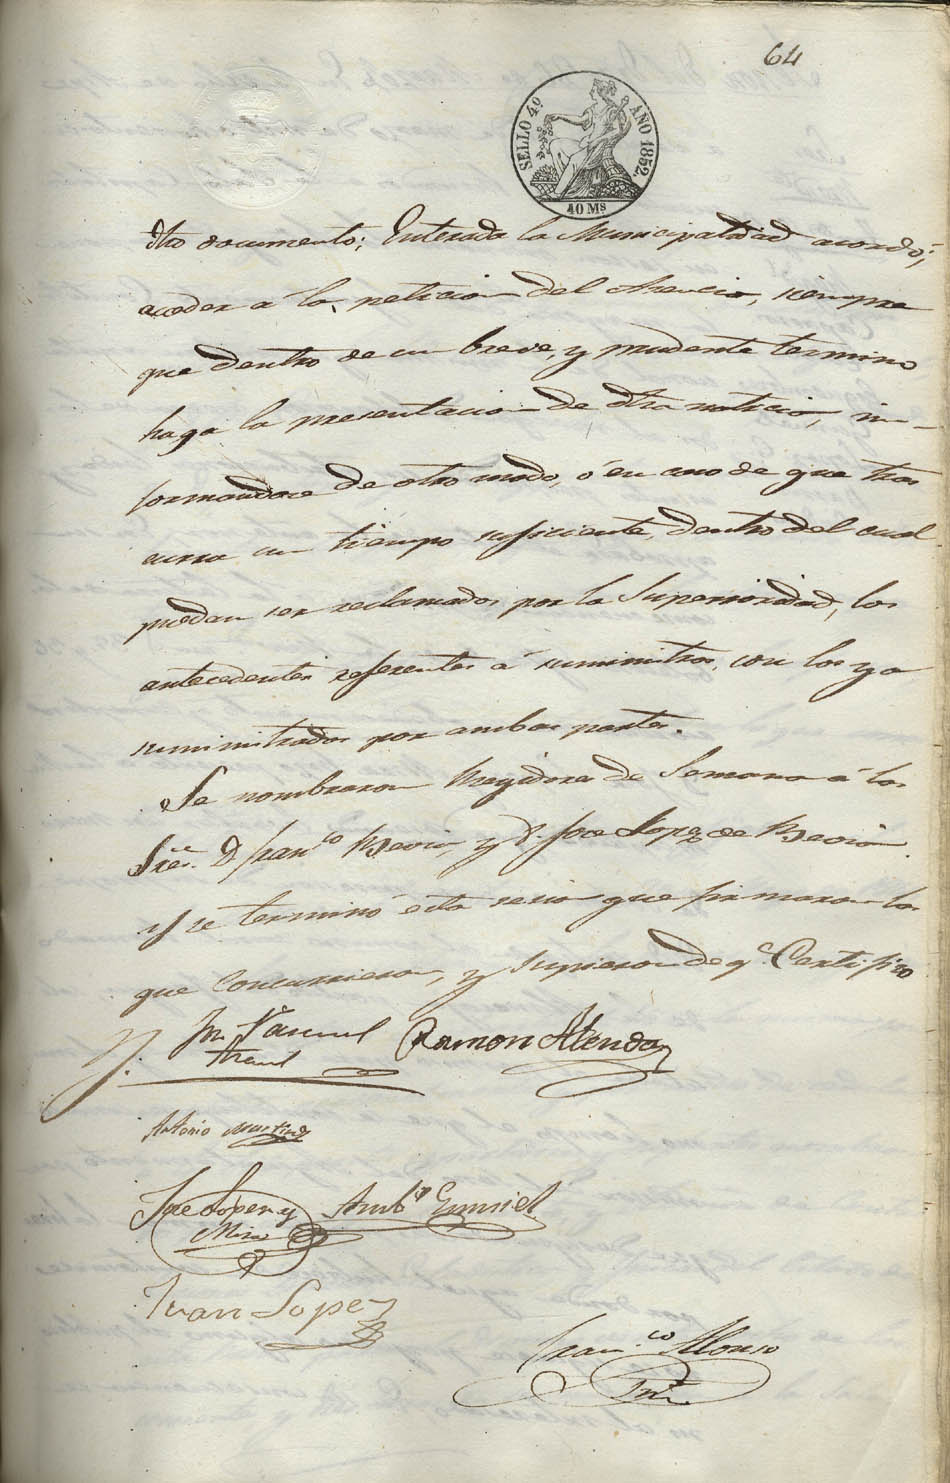 64
SELLO 4º AÑO 1852.
40 Ms
dho documento; Enterada la Municipalidad acordó;
acceder a la peticion del, siempre
que dentro de un breve, y prudente termino
haga la presentacion de dha noticia, in-
formandose de otro modo, ó en caso de que tras
curra un tiempo suficiente, dentro del cual
puedan ser reclamados por la Superioridad, los
antecedentes referentes á suministros, con los ya
suministrados por ambas partes.
Se nombraron Regidores de Semana á los
Sres. D. Franco, y D. Jose Lopez de
Y se terminó esta sesion que firmaron los
que concurrieron, y supieron de qe. Certifico
Pascual
Ramon
Antonio Martinez
Jose Lopez y
Mira
Ambº
Juan Lopez
Franco Alonso